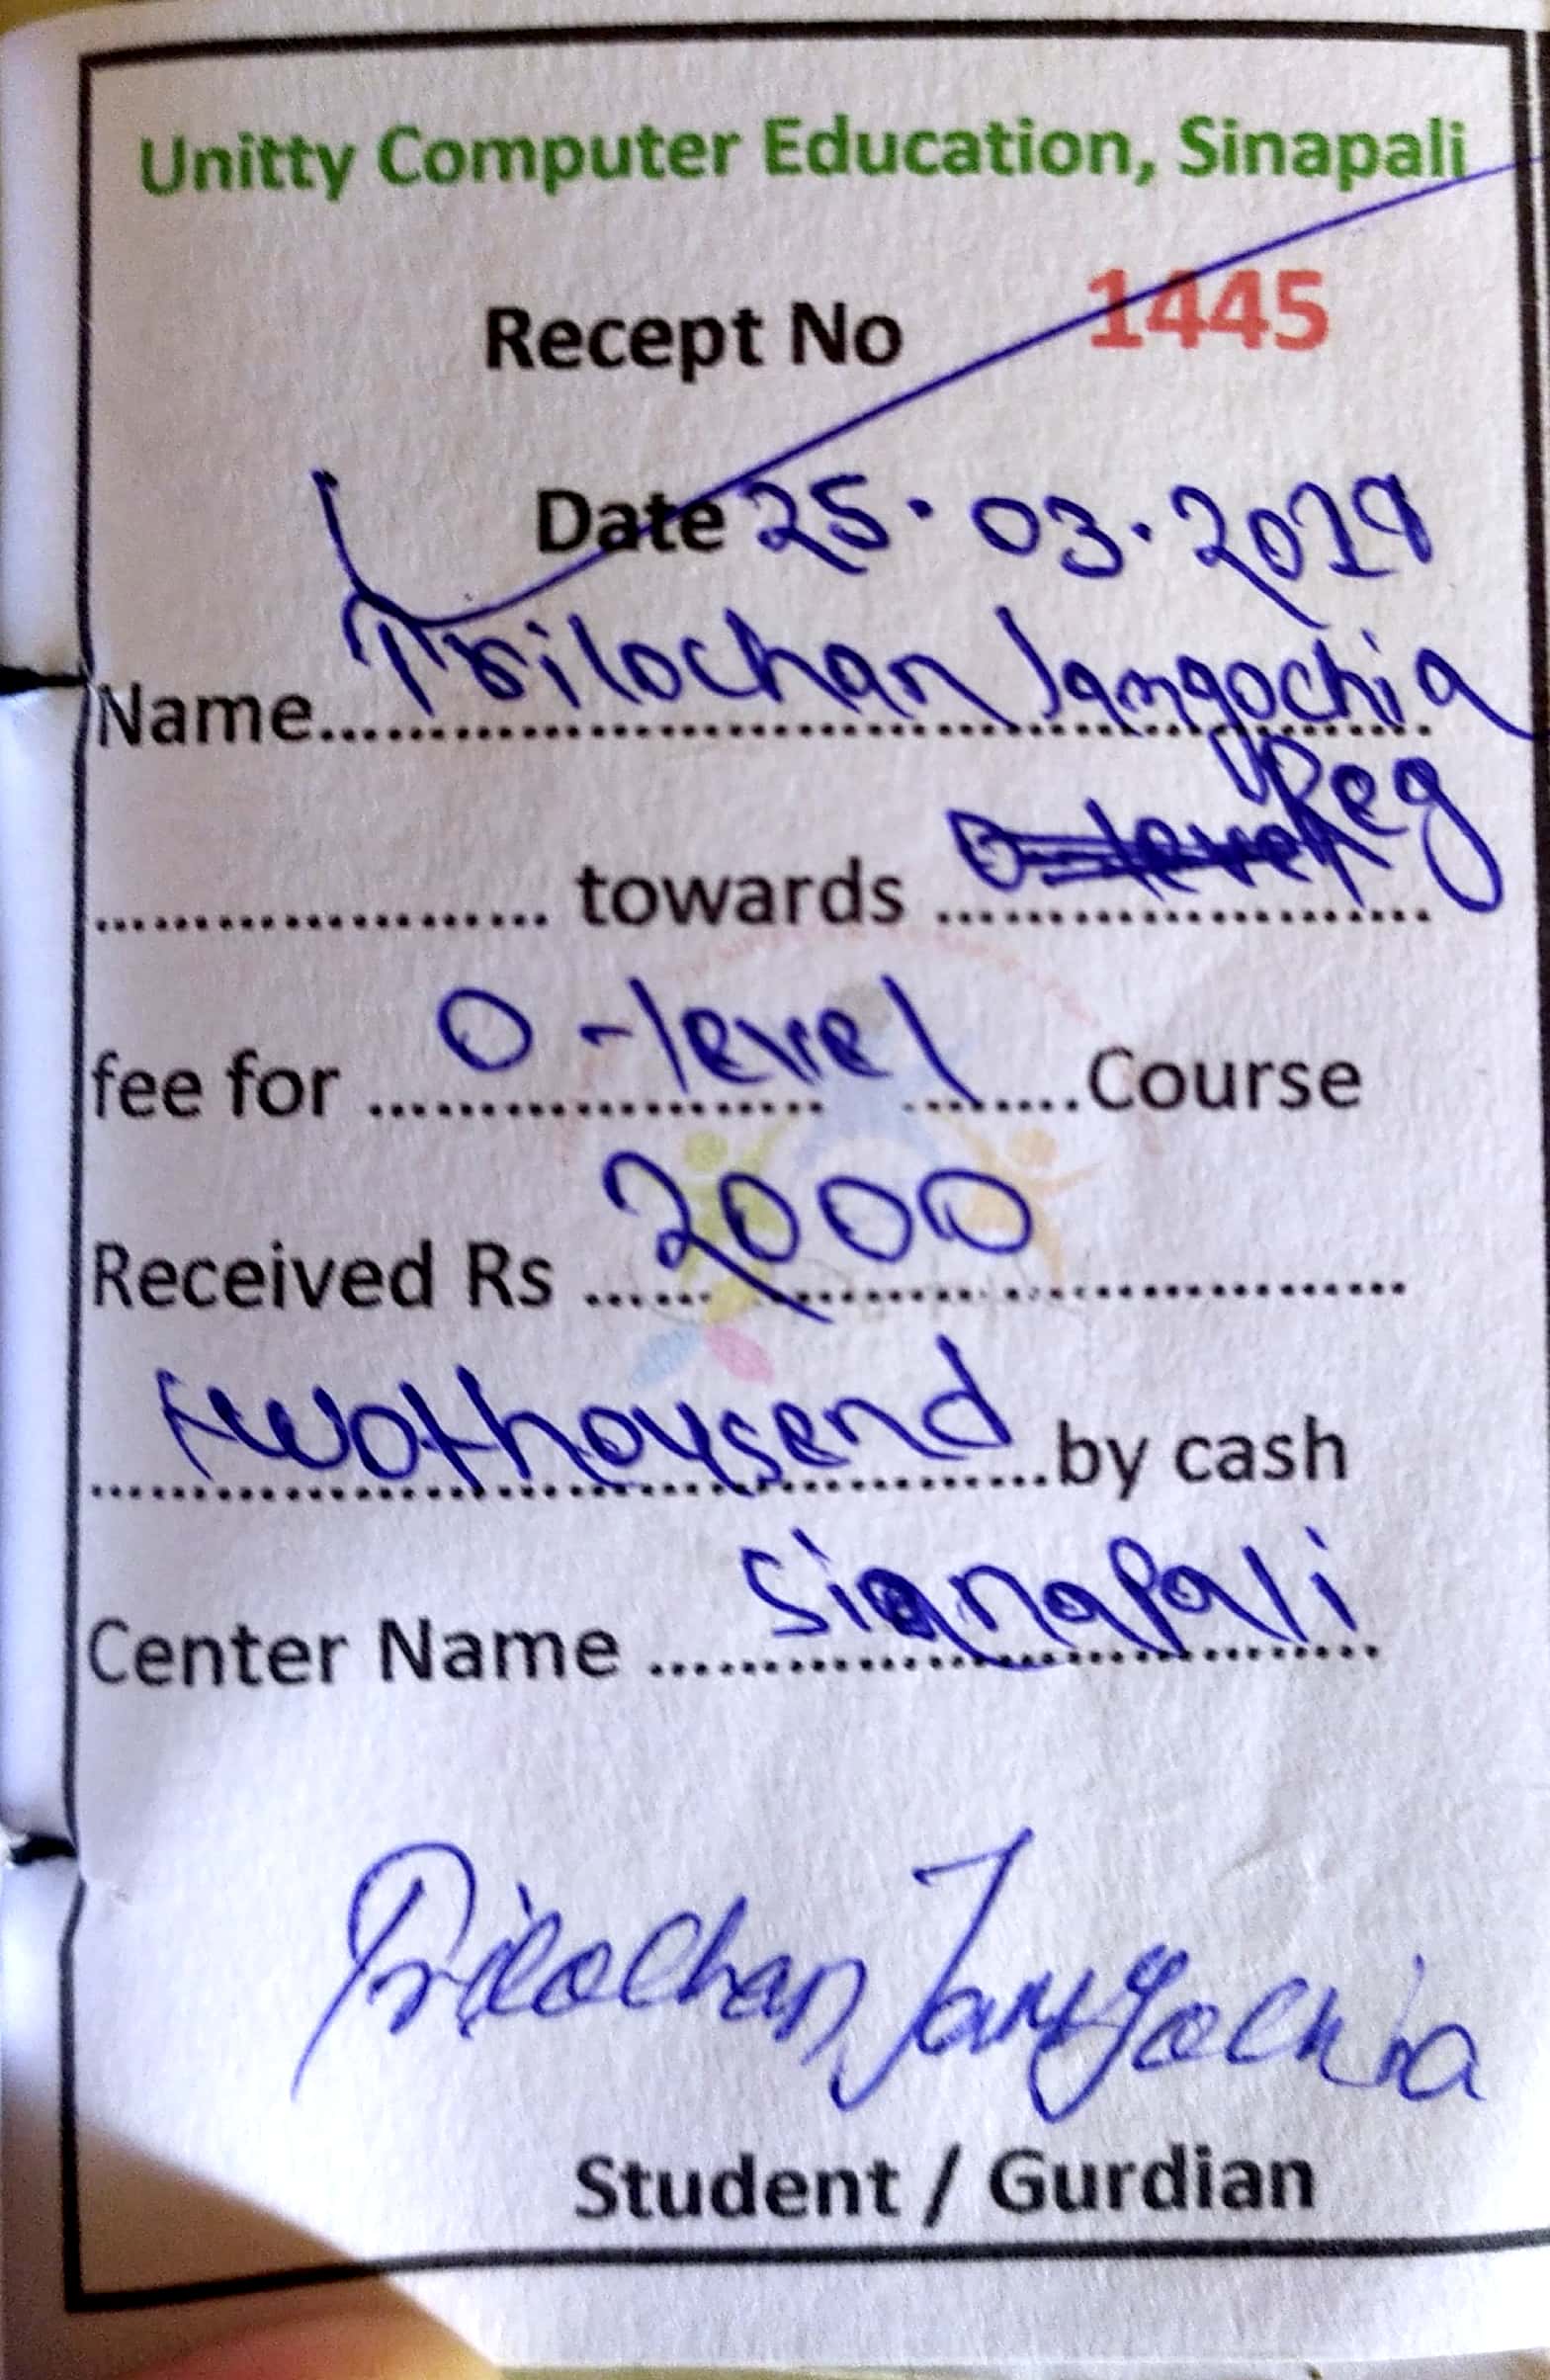 Unitty Computer Education, Sinapali
Recept No 1445
Date 25.03.2019
Name........Trilochan Jangochia
............ towards ............ Reg
fee for ....O-level....Course
Received Rs ....2000............
....twothousend....by cash
Center Name ....Sianapali....
Trilochan Jangochia
Student / Gurdian